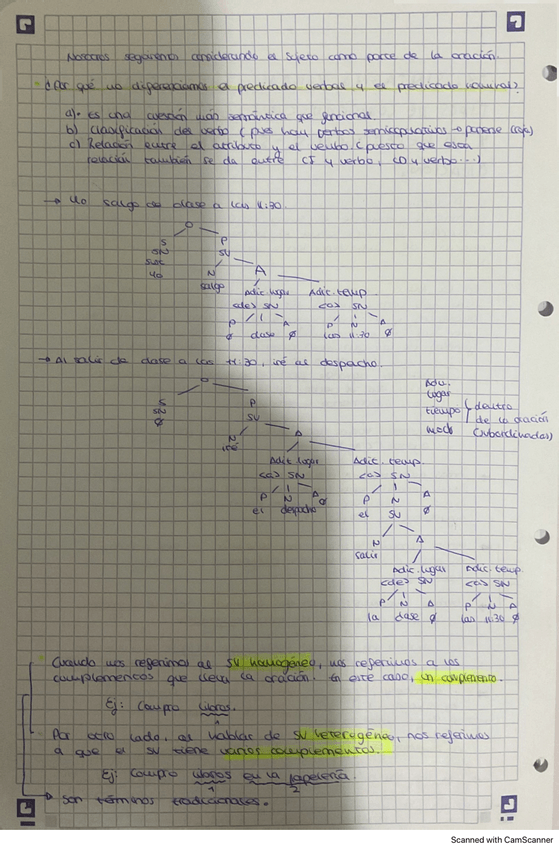 Nosotros seguiremos considerando el sujeto como parte de la oración.
¿Por qué no diferenciamos el predicado verbal y el predicado nominal?
a) es una cuestión más semántica que funcional.
b) Clasificación del verbo (pues hay verbos semicopulativos → ponerse (rojo)
c) Relación entre el atributo y el verbo. (puesto que esa
relación también se da entre CI y verbo, CD y verbo...)
→ Yo salgo de clase a las 11:30.
O
S P
SN SV
sust N A
Yo salgo Adic. lugar Adic. temp.
<de> SN <a> SN
P N A P N A
∅ clase ∅ las 11:30 ∅
→ Al salir de clase a las 11:30, iré al despacho.
O
S P
SN SV
∅ N A
iré
Adic. lugar Adic. temp.
<a> SN <a> SN
P N A P N A
el despacho ∅ el SV ∅
N A
salir
Adic. lugar Adic. temp.
<de> SN <a> SN
P N A P N A
la clase ∅ las 11:30 ∅
Adv.
lugar
tiempo dentro
modo de la oración
(subordinadas)
Cuando nos referimos al SV homogéneo, nos referimos a los
complementos que lleva la oración. En este caso, un complemento.
Ej: Compro libros.
1
Por otro lado, al hablar de SV heterogéneo, nos referimos
a que el SV tiene varios complementos.
Ej: Compro libros en la papelería.
1 2
→ Son términos tradicionales.
Scanned with CamScanner